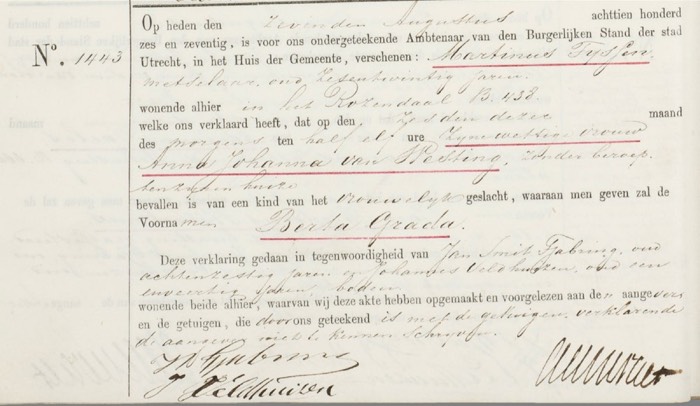 Op heden den Zevenden Augustus achttien honderd
zes en zeventig, is voor ons ondergeteekende Ambtenaar van den Burgerlijken Stand der stad
N°. 1443
Utrecht, in het Huis der Gemeente, verschenen: Martinus Tyssen,
metselaar, oud Zesentwintig jaren.
wonende alhier in het Rozendaal B. 438.
welke ons verklaard heeft, dat op den Zesden dezer maand
des morgens ten half elf ure Zyne wettige vrouw
Anna Johanna van Westing, zonder beroep,
tenzynen huize
bevallen is van een kind van het vrouwelyk geslacht, waaraan men geven zal de
Voornamen Berta Grada.
Deze verklaring gedaan in tegenwoordigheid van Jan Smit Fabring, oud
achtenzestig jaren en Johannes Veldhuizen, oud een
enveertig jaren, boden
wonende beide alhier, waarvan wij deze akte hebben opgemaakt en voorgelezen aan den aangever
en de getuigen, die door ons geteekend is met de getuigen, verklarende
de aangever niet te kunnen schryven.
J Veldhuizen